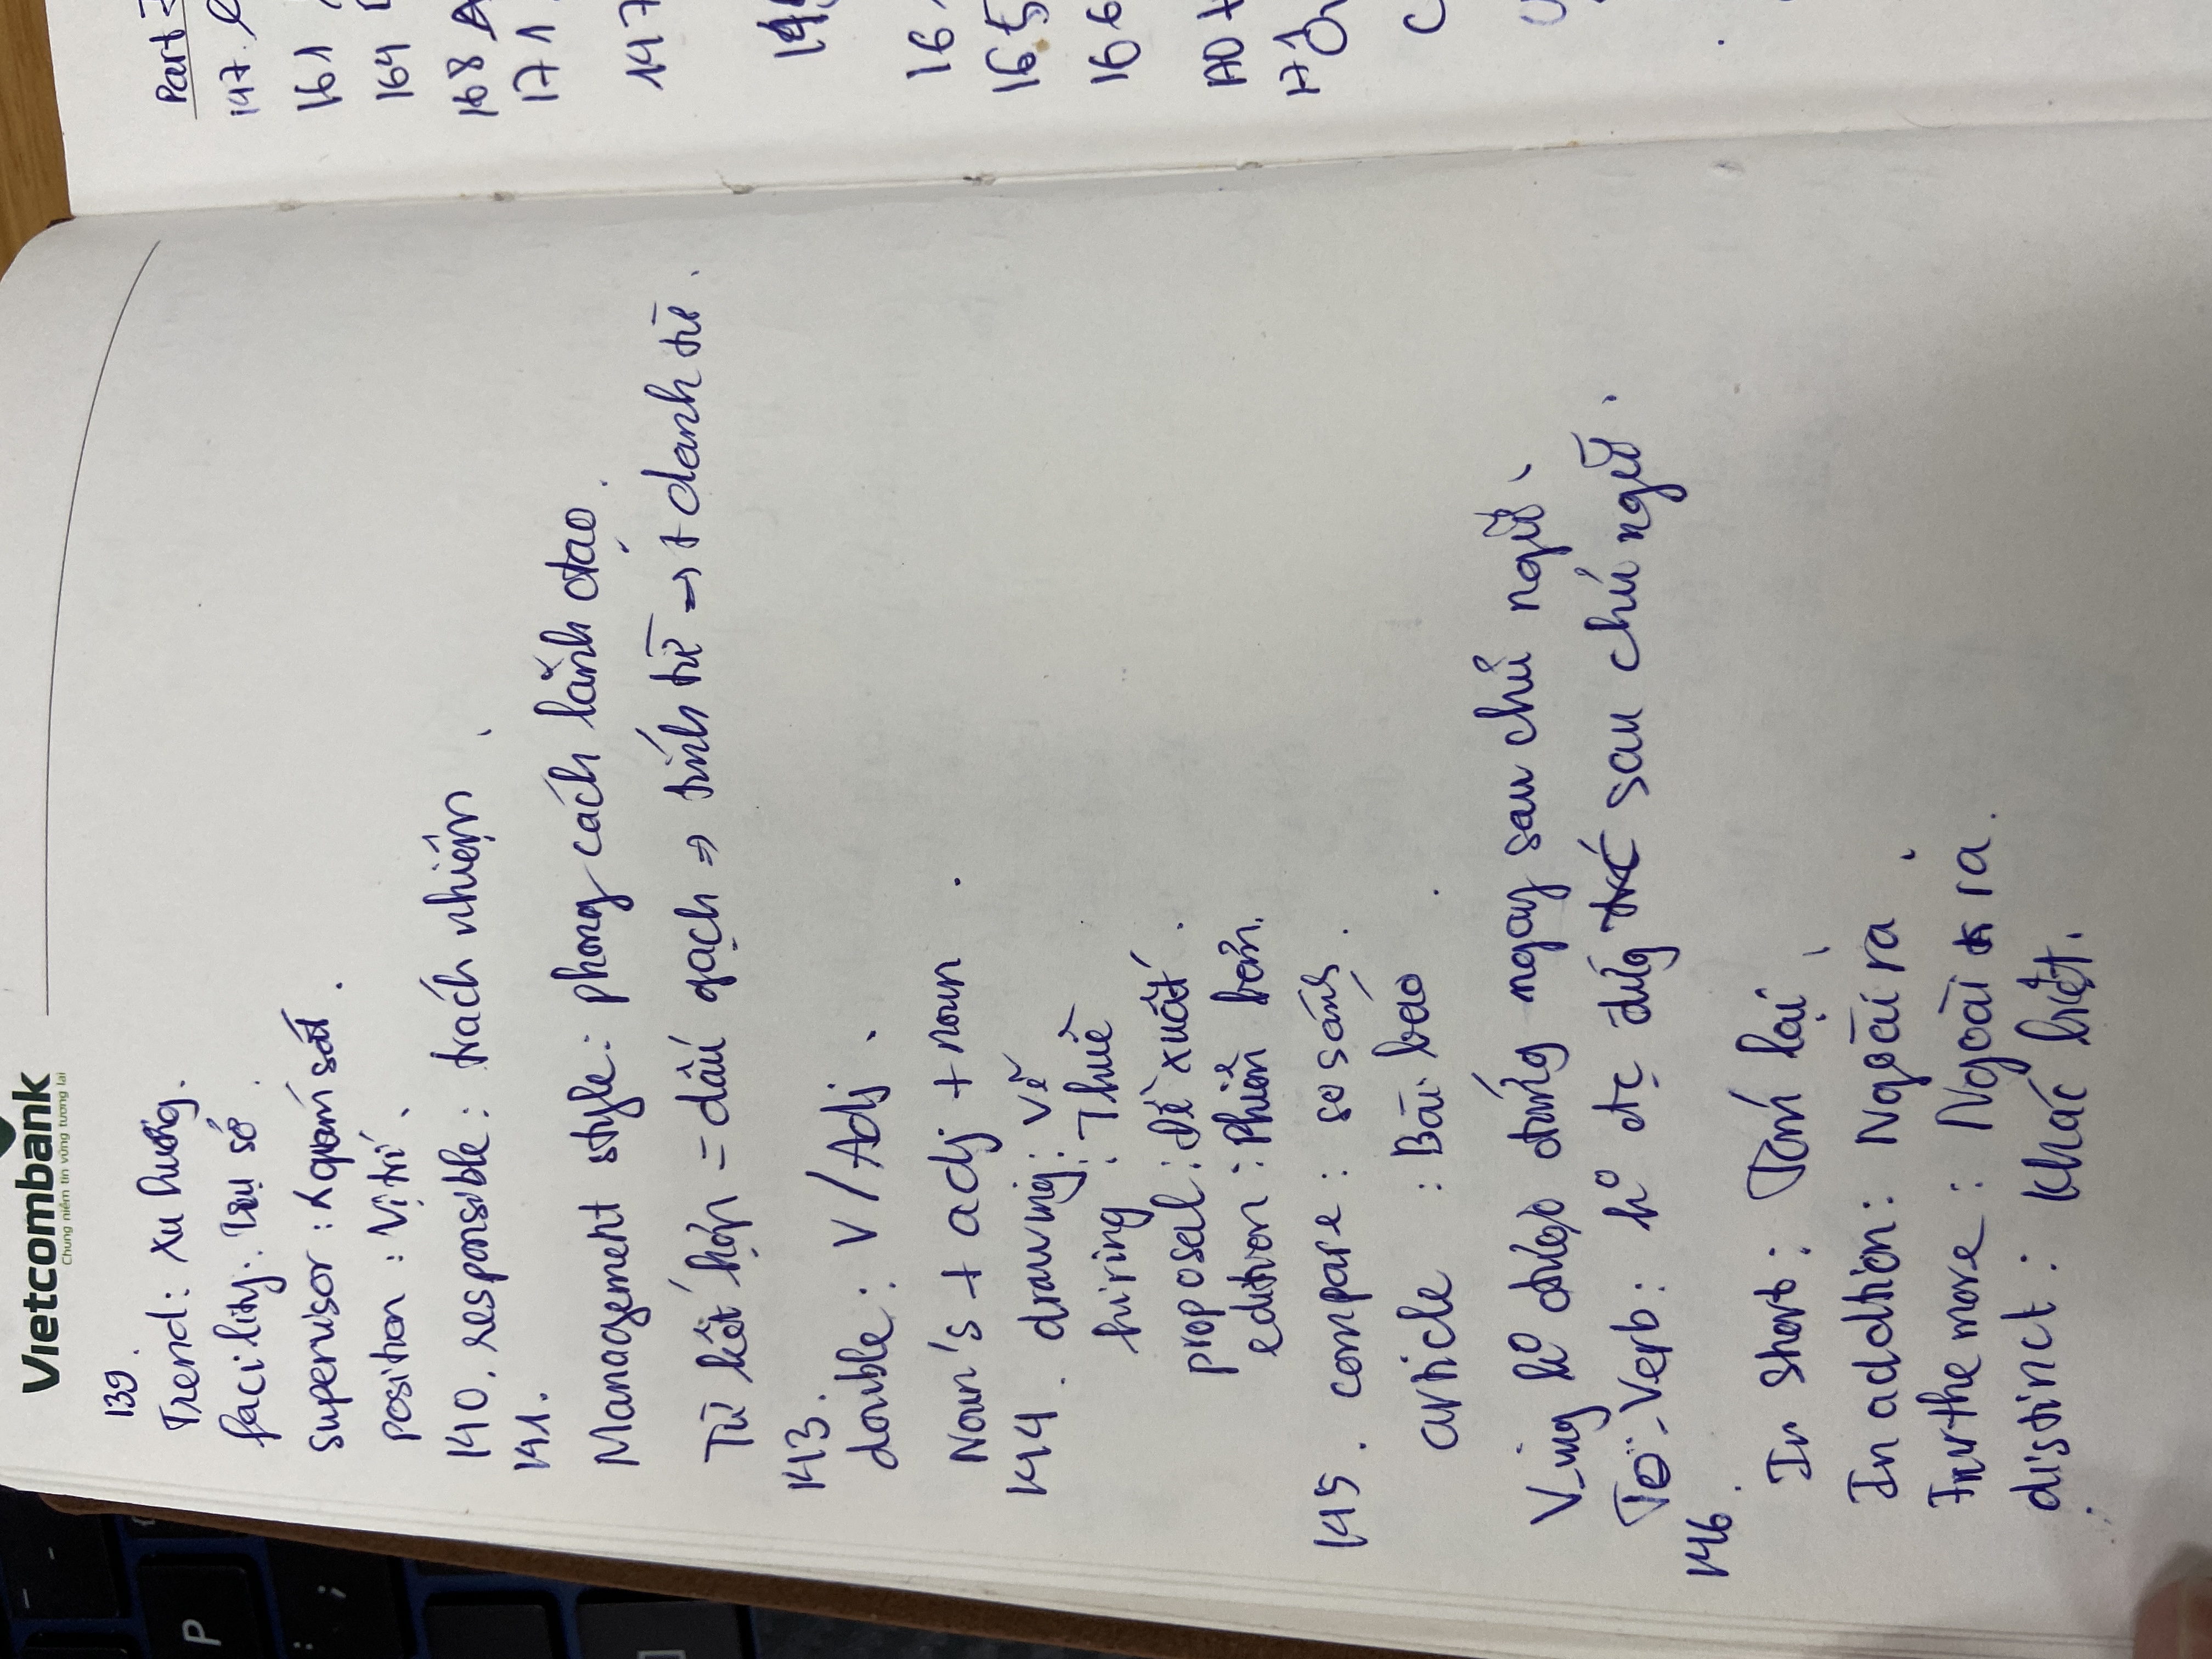 Vietcombank
Chung niềm tin vững tương lai
139.
Trend: xu hướng.
facility: trụ sở.
supervisor: quám sát.
position: Vị trí.
140. responsible: trách nhiệm.
141.
Management style: phong cách lãnh đạo.
Từ kết hợp = dấu gạch ⇒ tính từ ⇒ + danh từ.
143.
double: V/Adj.
Noun's + adj + noun.
144. drawing: vẽ
hiring: Thuê
proposal: Đề xuất.
edition: Phiên bản.
145. compare: so sánh.
article: Bài báo.
V-ing ko được đứng ngay sau chủ ngữ.
To-Verb: ko đc đứg sau chủ ngữ.
146.
In short: Tóm lại.
In addtion: Ngoài ra.
Furthe more: Ngoài ra.
distinct: Khác biệt.
Part
147.
161
164
168 A
171
147
16
165
166
AD
171